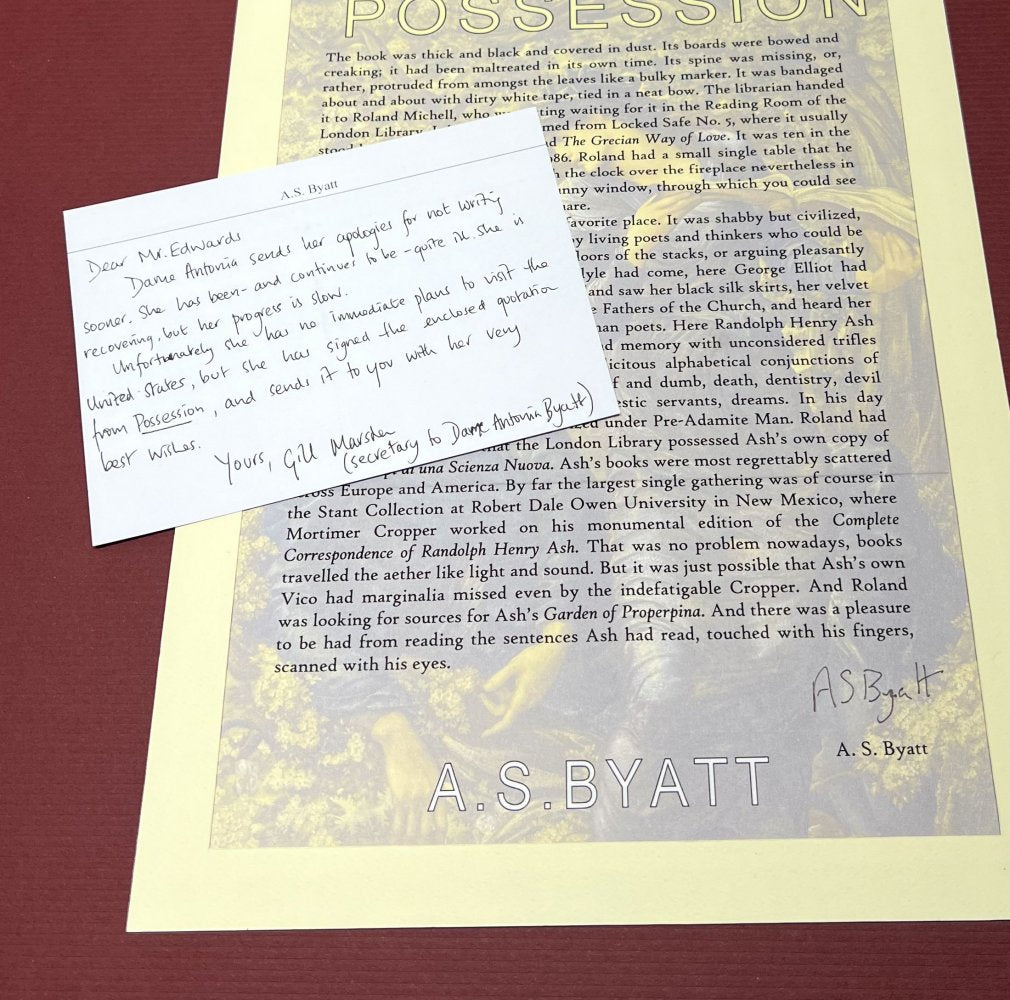 POSSESSION
The book was thick and black and covered in dust. Its boards were bowed and
creaking; it had been maltreated in its own time. Its spine was missing, or,
rather, protruded from amongst the leaves like a bulky marker. It was bandaged
about and about with dirty white tape, tied in a neat bow. The librarian handed
it to Roland Michell, who ting waiting for it in the Reading Room of the
London Library. med from Locked Safe No. 5, where it usually
d The Grecian Way of Love. It was ten in the
86. Roland had a small single table that he
the clock over the fireplace nevertheless in
nny window, through which you could see
are.
favorite place. It was shabby but civilized,
y living poets and thinkers who could be
loors of the stacks, or arguing pleasantly
lyle had come, here George Elliot had
and saw her black silk skirts, her velvet
e Fathers of the Church, and heard her
an poets. Here Randolph Henry Ash
d memory with unconsidered trifles
icitous alphabetical conjunctions of
f and dumb, death, dentistry, devil
estic servants, dreams. In his day
ed under Pre-Adamite Man. Roland had
at the London Library possessed Ash's own copy of
una Scienza Nuova. Ash's books were most regrettably scattered
ross Europe and America. By far the largest single gathering was of course in
the Stant Collection at Robert Dale Owen University in New Mexico, where
Mortimer Cropper worked on his monumental edition of the Complete
Correspondence of Randolph Henry Ash. That was no problem nowadays, books
travelled the aether like light and sound. But it was just possible that Ash's own
Vico had marginalia missed even by the indefatigable Cropper. And Roland
was looking for sources for Ash's Garden of Properpina. And there was a pleasure
to be had from reading the sentences Ash had read, touched with his fingers,
scanned with his eyes.
A S Byatt
A. S. Byatt
A.S.BYATT
A.S. Byatt
Dear Mr. Edwards
Dame Antonia sends her apologies for not writing
sooner. She has been - and continues to be - quite ill. She is
recovering, but her progress is slow.
Unfortunately she has no immediate plans to visit the
United States, but she has signed the enclosed quotation
from Possession, and sends it to you with her very
best wishes.
Yours, Gill Marsden
(secretary to Dame Antonia Byatt)